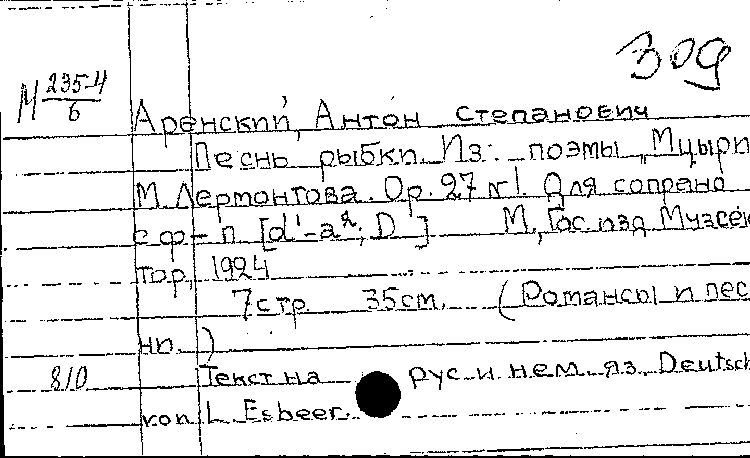 309
М 235-4
6
Аренский, Антон Степанович
Песнь рыбки. Из поэмы „Мцыри
М. Лермонтова. Ор. 27 №1. Для сопрано
с ф-п. [d'-a²; D ] М., Гос. изд. Музсек
тор, 1924
7 стр. 35 см. (Романсы и пес
ни.)
810 Текст на рус. и нем. яз. Deutsch
von L. Esbeer.